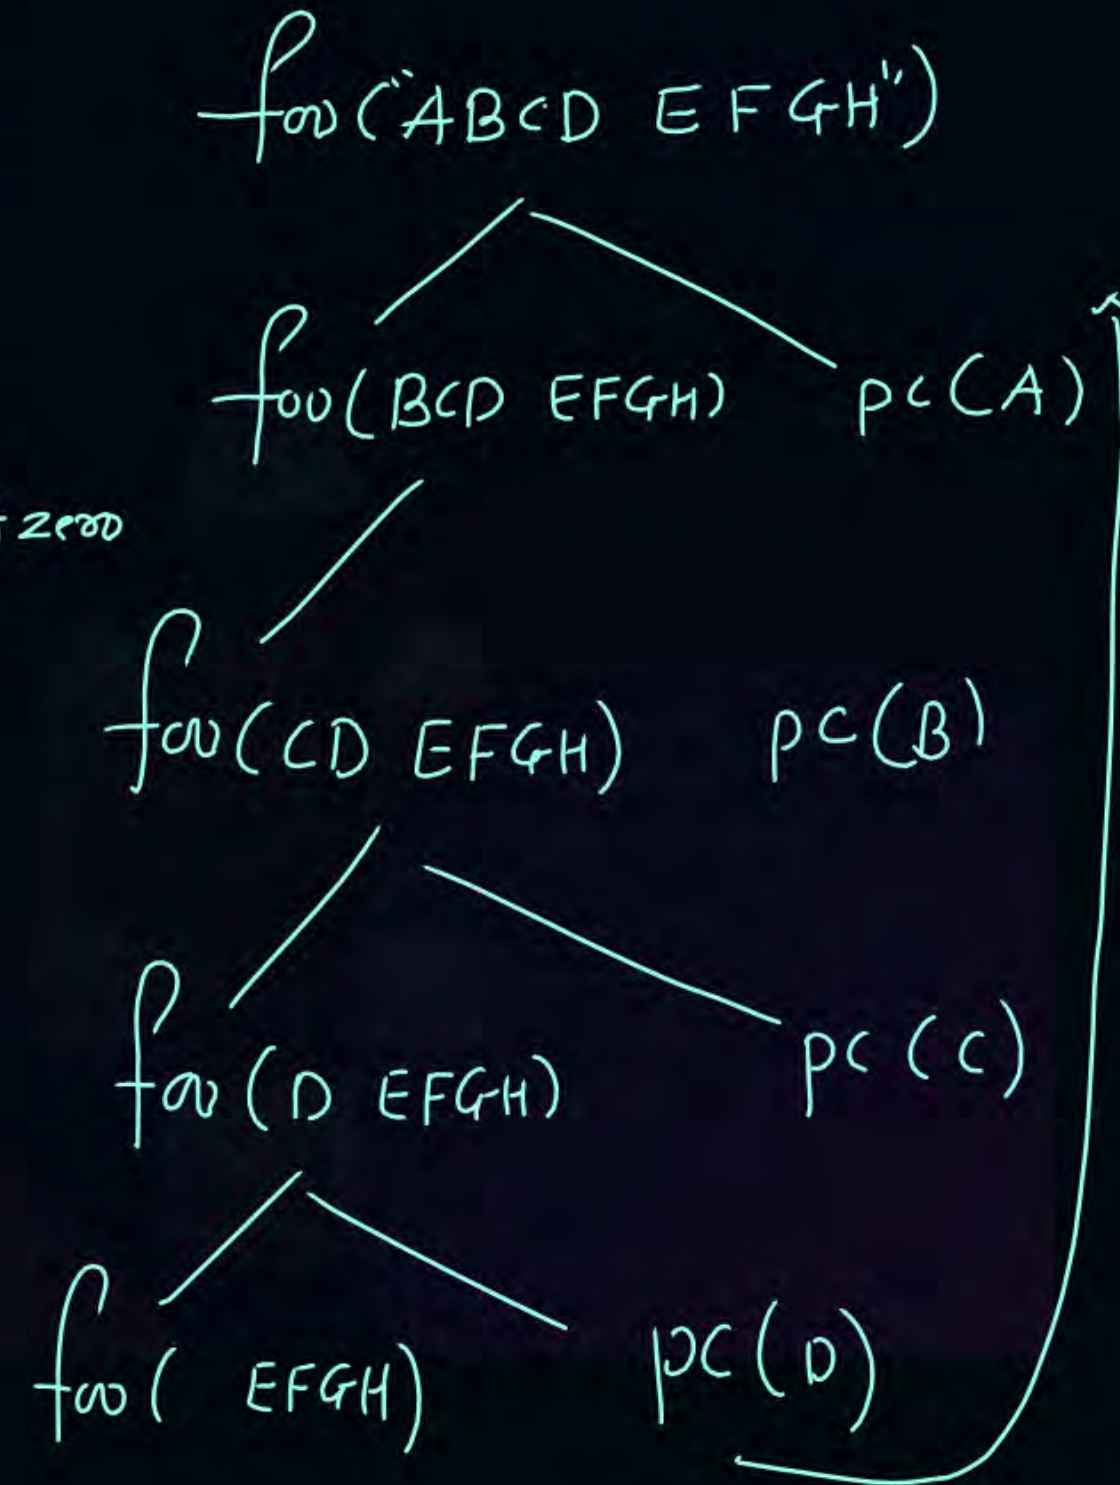 foo("ABCD EFGH")
foo(BCD EFGH) pc(A)
zero
foo(CD EFGH) pc(B)
foo(D EFGH) pc(C)
foo( EFGH) pc(D)